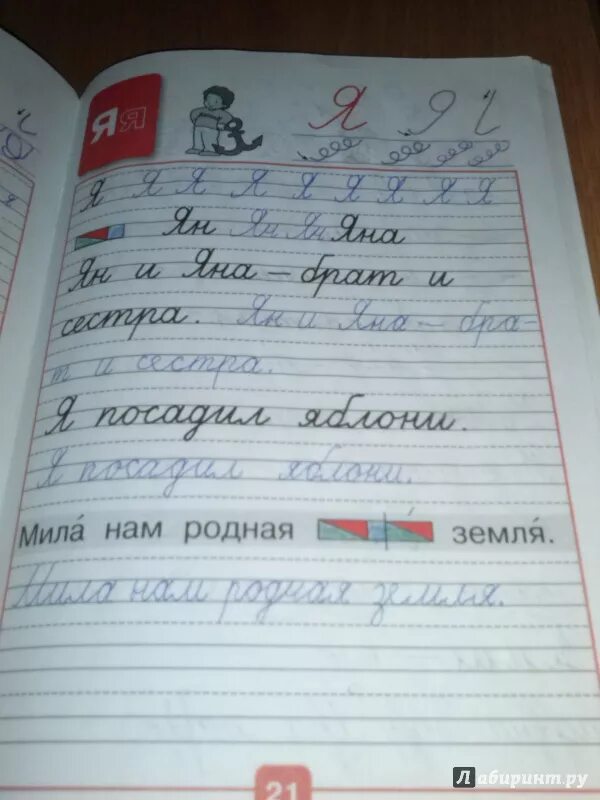 Я Я
Я Я
Я Я Я Я Я Я Я Я Я
Ян Ян Ян Яна
Ян и Яна – брат и
сестра. Ян и Яна – бра-
т и сестра.
Я посадил яблони.
Я посадил яблони.
Мила́ нам родная земля́.
Мила нам родная земля.
21
Лабиринт.ру